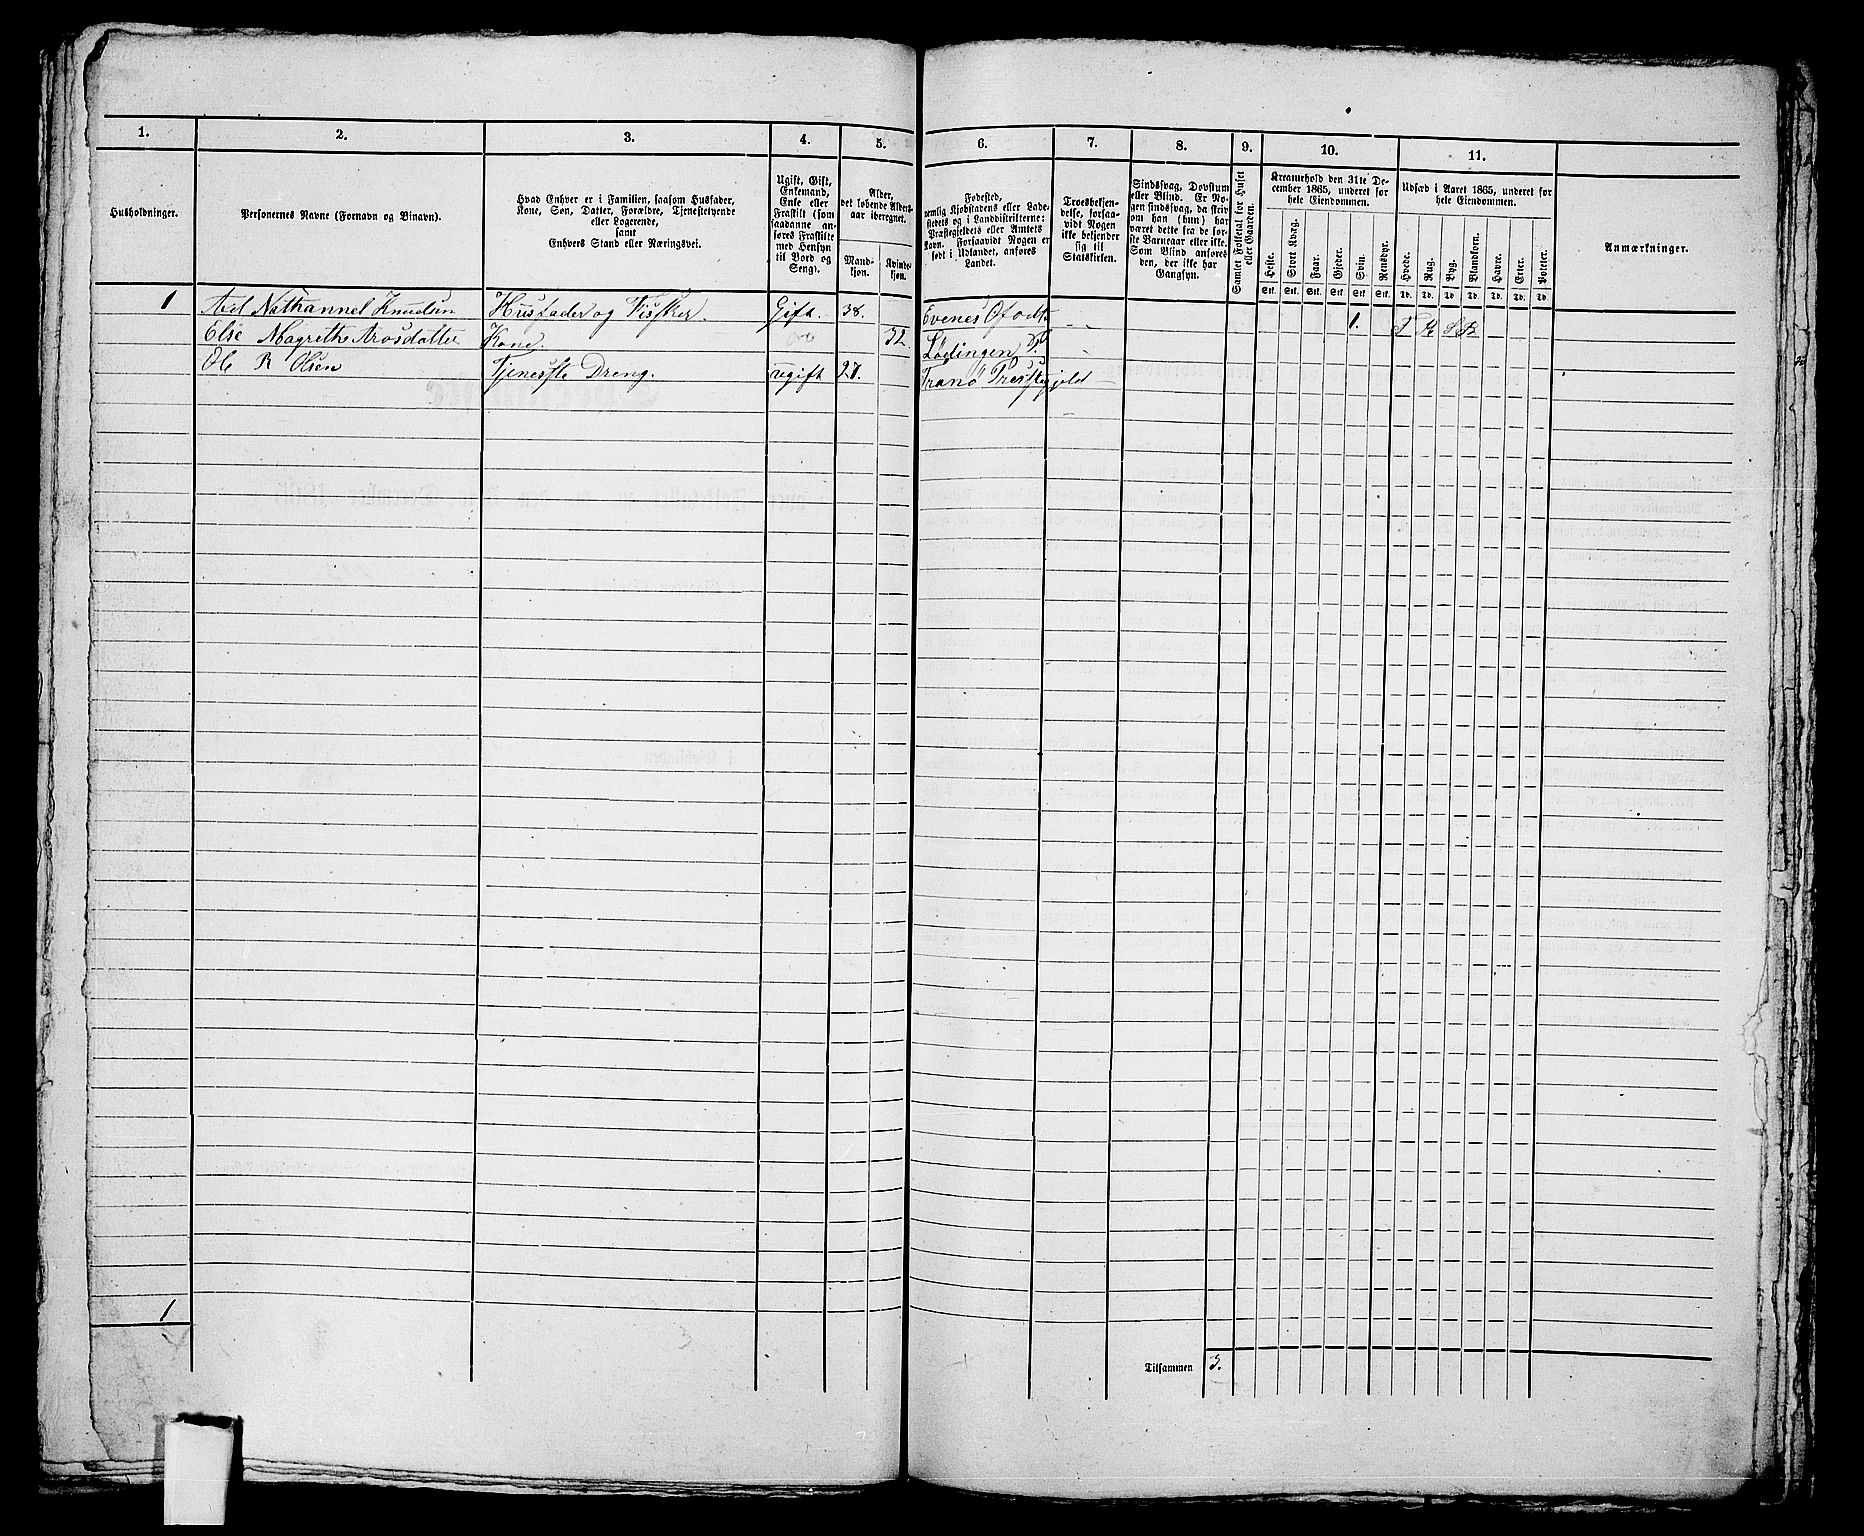 1. 2. 3. 4. 5. 6. 7. 8. 9. 10. 11.
Husholdninger.
Personernes Navne (Fornavn og Binavn).
Hvad Enhver er i Familien, saasom Husfader,
Kone, Søn, Datter, Forældre, Tjenestetyende
eller Logerende,
samt
Enhvers Stand eller Næringsvei.
Ugift, Gift,
Enkemand,
Enke eller
Fraskilt (som
saadanne an-
føres Fraskilte
med Hensyn
til Bord og
Seng).
Alder,
det løbende Alders-
aar iberegnet.
Mand-
kjøn.
Kvinde-
kjøn.
Fødested,
nemlig Kjøbstadens eller Lade-
stedets og i Landdistrikterne:
Præstegjeldets eller Amtets
Navn. Forsaavidt Nogen er
født i Udlandet, anføres
Landet.
Troesbekjen-
delse, forsaa-
vidt Nogen
ikke bekjender
sig til
Statskirken.
Sindssvag, Døvstum
eller Blind. Er No-
gen sindssvag, da skrives
om han (hun) har
været dette fra de før-
ste Barneaar eller ikke.
Som Blind anføres
den, der ikke har
Gangsyn.
Samlet Folketal for Huset
eller Gaarden.
Kreaturhold den 31te De-
cember 1865, underet for
hele Eiendommen.
Heste. Stort Kvæg. Faar. Gjeder. Svin. Rensdyr.
Stk. Stk. Stk. Stk. Stk. Stk.
Udsæd i Aaret 1865, underet for
hele Eiendommen.
Hvede. Rug. Byg. Blandkorn. Havre. Erter. Poteter.
Td. Td. Td. Td. Td. Td. Td.
Anmærkninger.
1 Nathannel Knudsen Husfader og Fissker. Gift. 38. Evenes Ofodt. 1.
Else Magrethe Arosdatter Kone. 32 Lødingen
Ole R Olsen Tjenesste Dreng. ugift 27. Tranø Presstegjeld
1
Tilsammen 3.